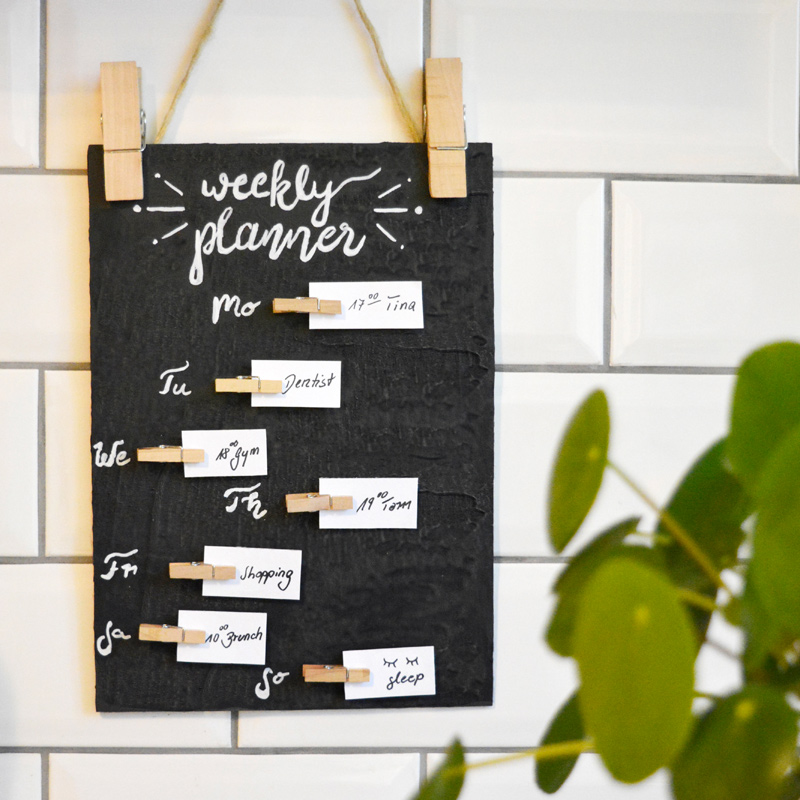 weekly
planner
Mo 17⁰⁰ Tina
Tu Dentist
We 18⁰⁰ gym
Th 19⁰⁰ Tom
Fr Shopping
Sa 10⁰⁰ Brunch
So sleep